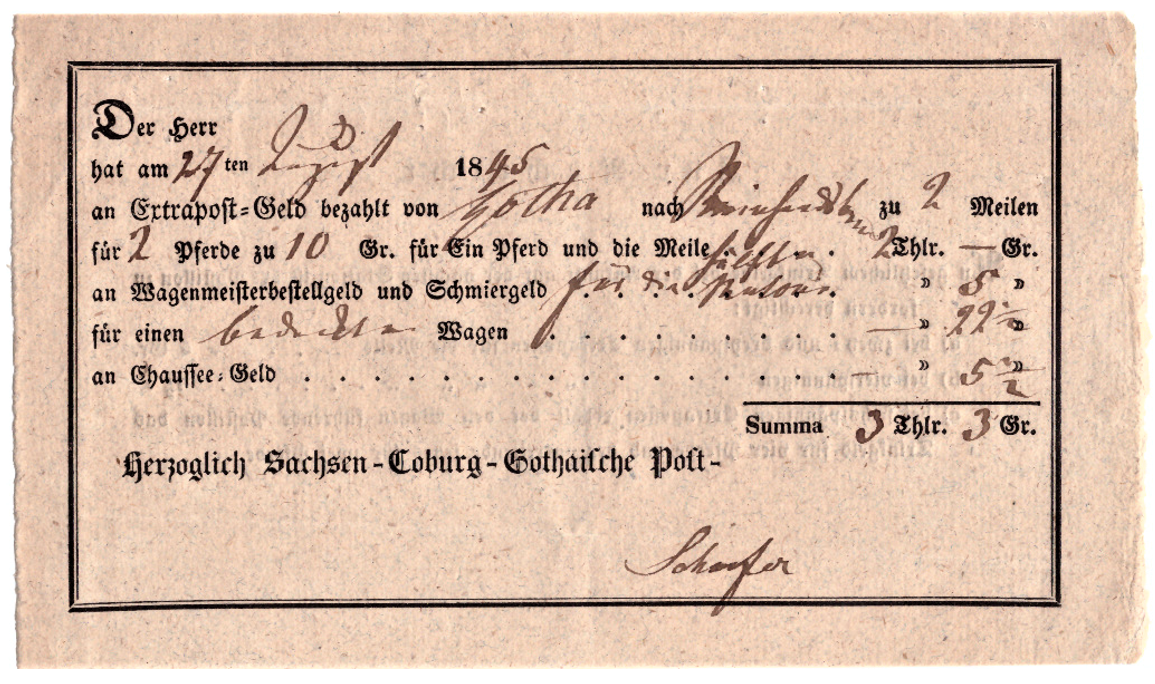 Der Herr
hat am 27ten August 1845
an Extrapost-Geld bezahlt von Gotha nach Reinhardsbrunn zu 2 Meilen
für 2 Pferde zu 10 Gr. für Ein Pferd und die Meile . 2 Thlr. — Gr.
an Wagenmeisterbestellgeld und Schmiergeld für die . . . » 5 »
für einen bedeckten Wagen . . . . . . . . — » 22½ »
an Chaussee-Geld . . . . . . . . . . . . . . — » 5½ »
Summa 3 Thlr. 3 Gr.
Herzoglich Sachsen-Coburg-Gothaische Post-
Schaefer